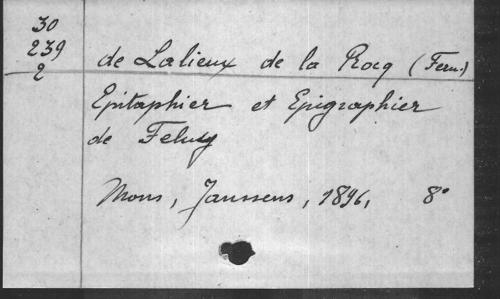 30
239
2
de Lalieux de la Rocq (Fern.)
Epitaphier et Epigraphier
de Feluy
Mons, Janssens, 1896, 8°